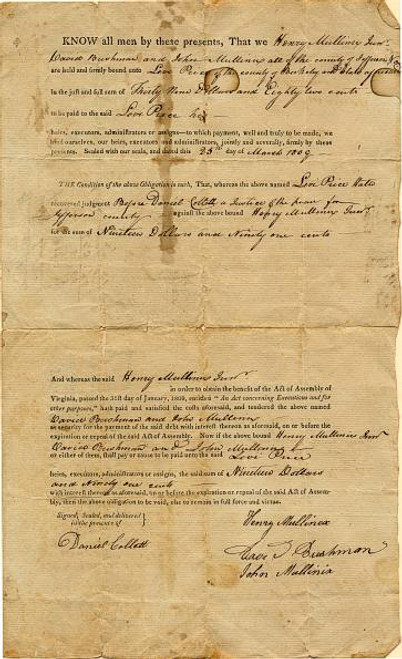 KNOW all men by these presents, That we Henry Mullinix Junr.
David Bushman and John Mullinix all of the county of Jefferson
are held and firmly bound unto Levi Price of the county of Berkeley and State aforesaid
in the just and full sum of Thirty Nine Dollars and Eighty two cents
to be paid to the said Levi Price his
heirs, executors, administrators or assigns—to which payment, well and truly to be made, we
bind ourselves, our heirs, executors and administrators, jointly and severally, firmly by these
presents. Sealed with our seals, and dated this 23d day of March 1809
THE Condition of the above Obligation is such, That, whereas the above named Levi Price hath
recovered judgment Before Daniel Collett a Justice of the peace for
Jefferson county against the above bound Henry Mullinix Junr.
for the sum of Nineteen Dollars and Ninety one cents
And whereas the said Henry Mullinix Junr.
in order to obtain the benefit of the Act of Assembly of
Virginia, passed the 31st day of January, 1809, entitled "An Act concerning Executions and for
other purposes," hath paid and satisfied the costs aforesaid, and tendered the above named
David Bushman and John Mullinix
as security for the payment of the said debt with interest thereon as aforesaid, on or before the
expiration or repeal of the said Act of Assembly. Now if the above bound Henry Mullinix Junr.
David Bushman and John Mullinix
or either of them, shall pay or cause to be paid unto the said Levi Price
heirs, executors, administrators or assigns, the said sum of Nineteen Dollars
and Ninety one cents
with interest thereon as aforesaid, on or before the expiration or repeal of the said Act of Assem-
bly, then the above obligation to be void, else to remain in full force and virtue.
Signed, Sealed, and delivered }
in the presence of }
Henry Mullinex
Daniel Collett
Bushman
John Mullinix